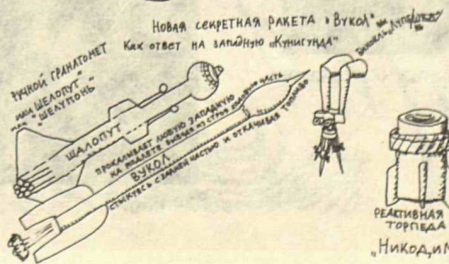 НОВАЯ СЕКРЕТНАЯ РАКЕТА "ВУКОЛ"
КАК ОТВЕТ НА ЗАПАДНУЮ "КУНИГУНДА"
РУЧНОЙ ГРАНАТОМЕТ
ИЛИ "ШЕЛОПУТ"
ИЛИ "ШЕЛУПОНЬ"
ШАЛОПУТ
ПРОКАЛЫВАЕТ ЛЮБУЮ ЗАПАДНУЮ
НА ПОДЛЕТЕ ВЫВОДЯ ИЗ СТРОЯ ЧАСТЬ
ВУКОЛ
СТЫКУЯСЬ С ЗАДНЕЙ ЧАСТЬЮ И ОТКАЧИВАЯ ТОПЛИВО
БИНОКЛЬ
РЕАКТИВНАЯ
ТОРПЕДА
"НИКОДИМ